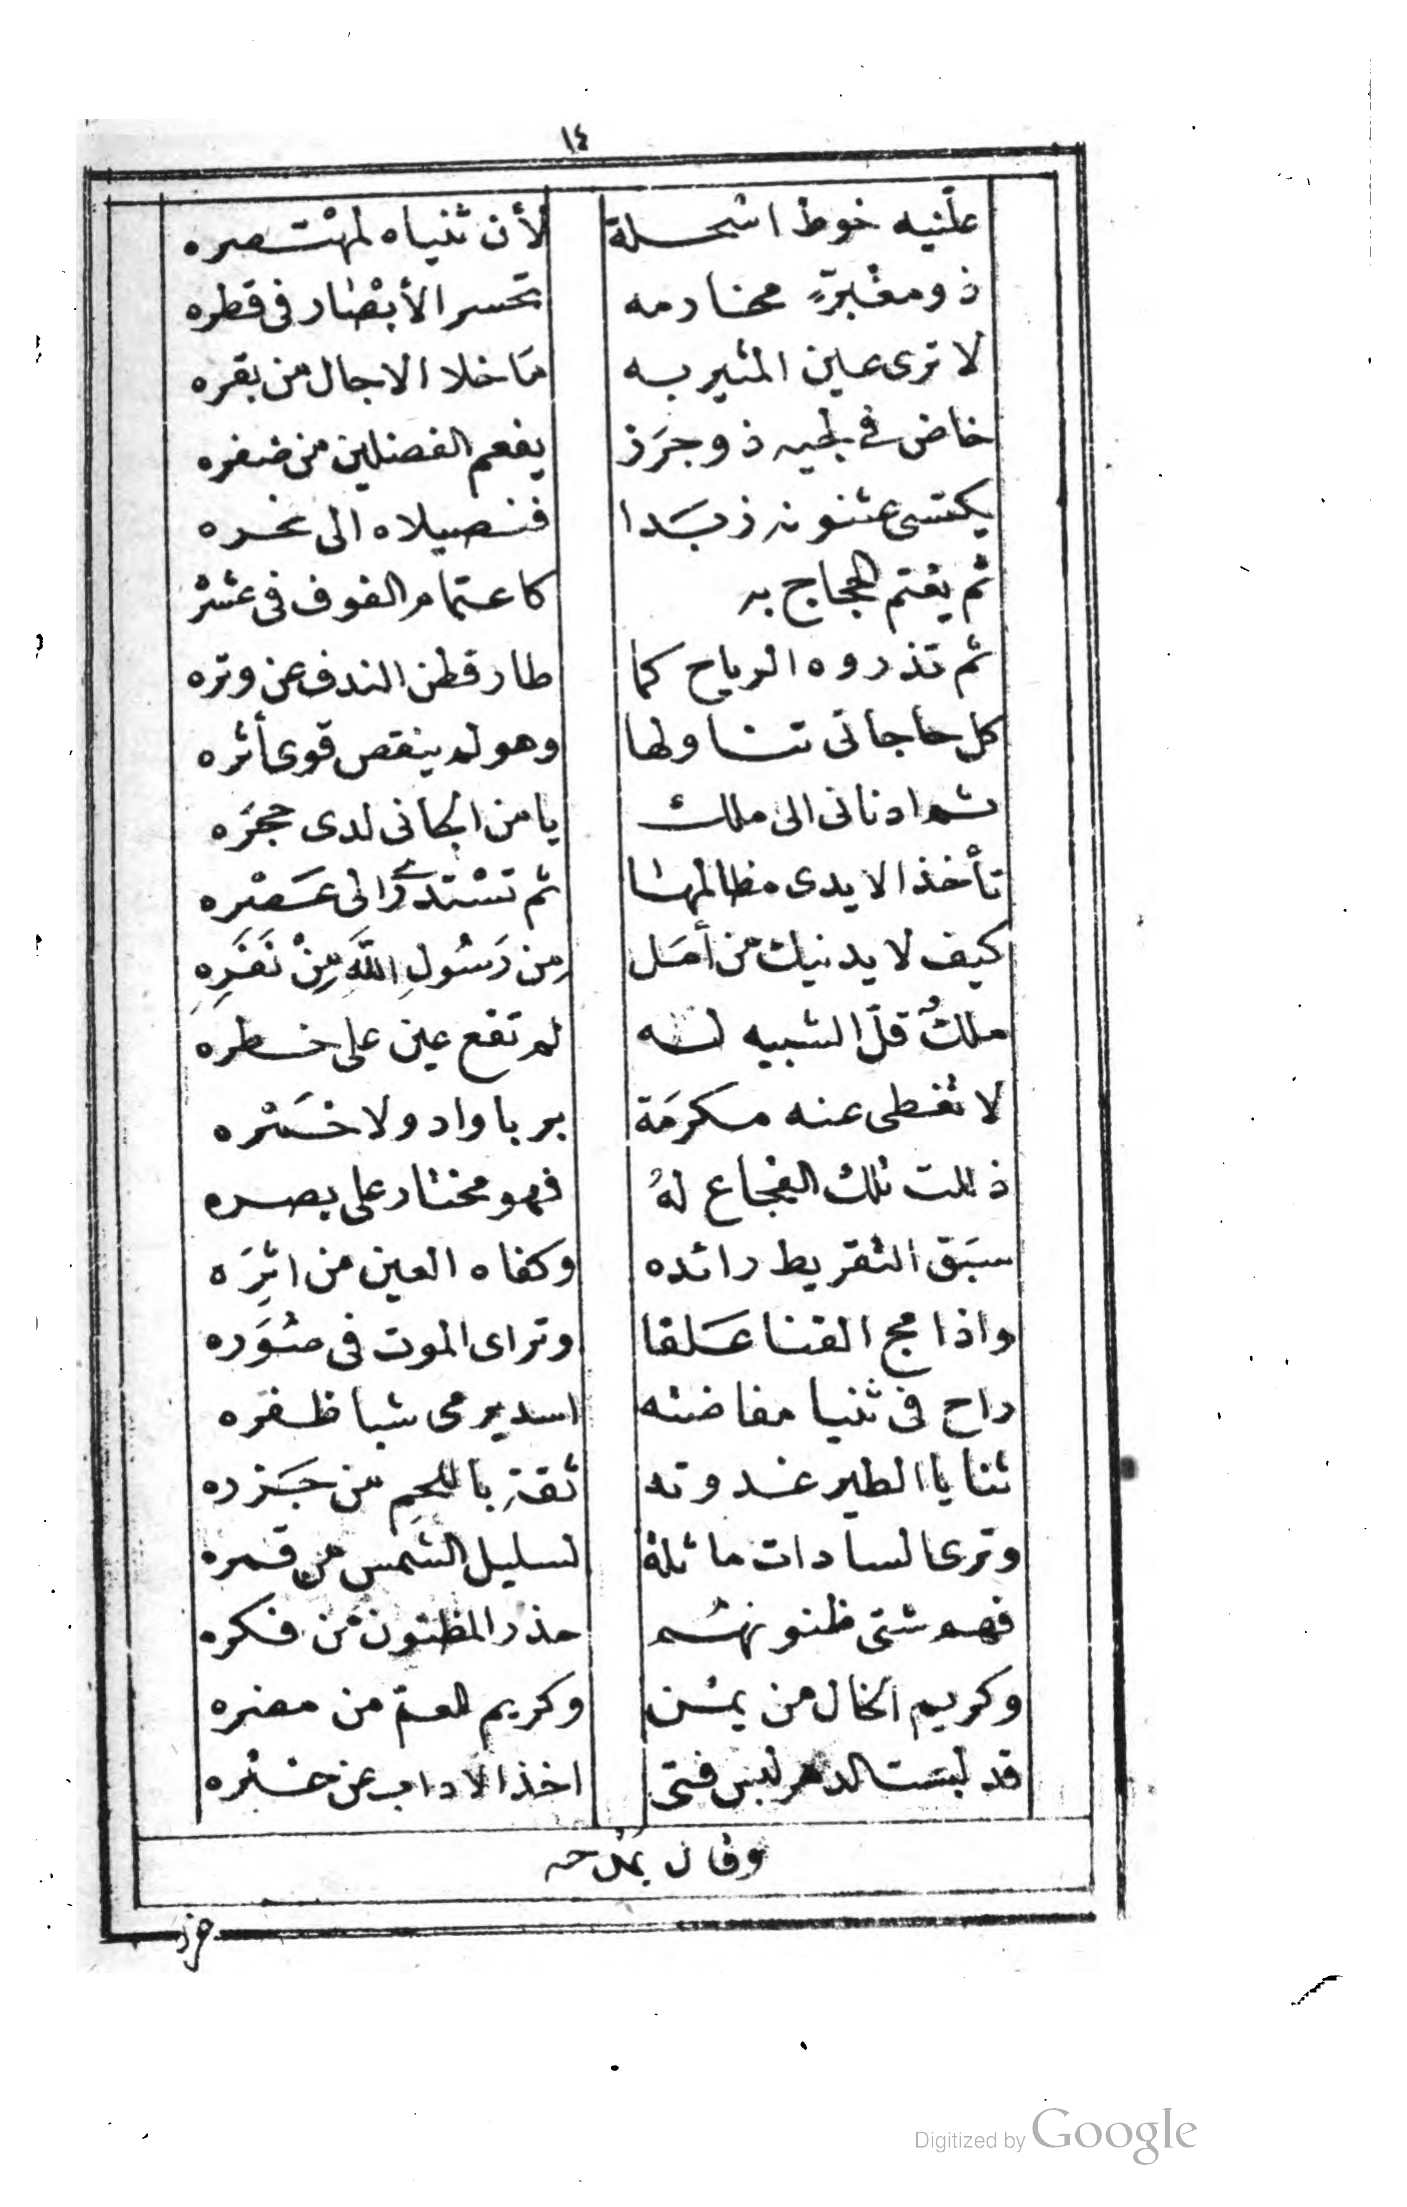 ١٤
علنيه خوط اسحلة لأن ثنياه لمهتصره
ذو مغبرّ مخارمه تحسر الأبصار فى قطره
لا ترى عين المثير به مَا خلا الاجال من بقره
خاض فى لجيه ذو جرَز يفعم الفضلين من ضفره
يكتسى عثنونه زبَدا فنصيلاه الى نحره
ثم يغتم الحجاج به كاعتمام الفوف فى عشر
ثم تذروه الرياح كما طار قطن الندف عن وتره
كل حاجاتى تناولها وهو لم ينقص قوى أثره
ثم ادنانى الى ملك يامن الجانى لدى حجرَه
تأخذ الايدى مظالمها ثم تسْتذرى الى عَصَره
كيف لا يدنيك من أمَل مِن رَسُولِ اللَّهِ مِنْ نَفَرِهِ
ملكٌ قلّ الشبيه له لم تقع عين على خطره
لا تغطى عنه مكرمَة بر باواد ولا خَمَره
ذللت تلك الفجاع لهُ فهو مختار على بصره
سبَق التقريط رائده وكفاه العين من اثِرَه
واذا مج القنا عَلقا وتراى الموت فى صُوَره
راح فى ثنيا مفاضته اسد يرمى شبا ظفره
ثنايا الطير غدوته ثقة باللحمِ من جَزره
وترى السادات ماثلة لسليل الشمس من قمره
فهم شتى ظنونهُم حذر المظنون من فكره
وكريم الخال من يمُن وكريم العمّ من مضره
قد لبسَت الدهر لبس فتى اخذ الاداب عن خبَره
وقال يمدحه
Digitized by Google